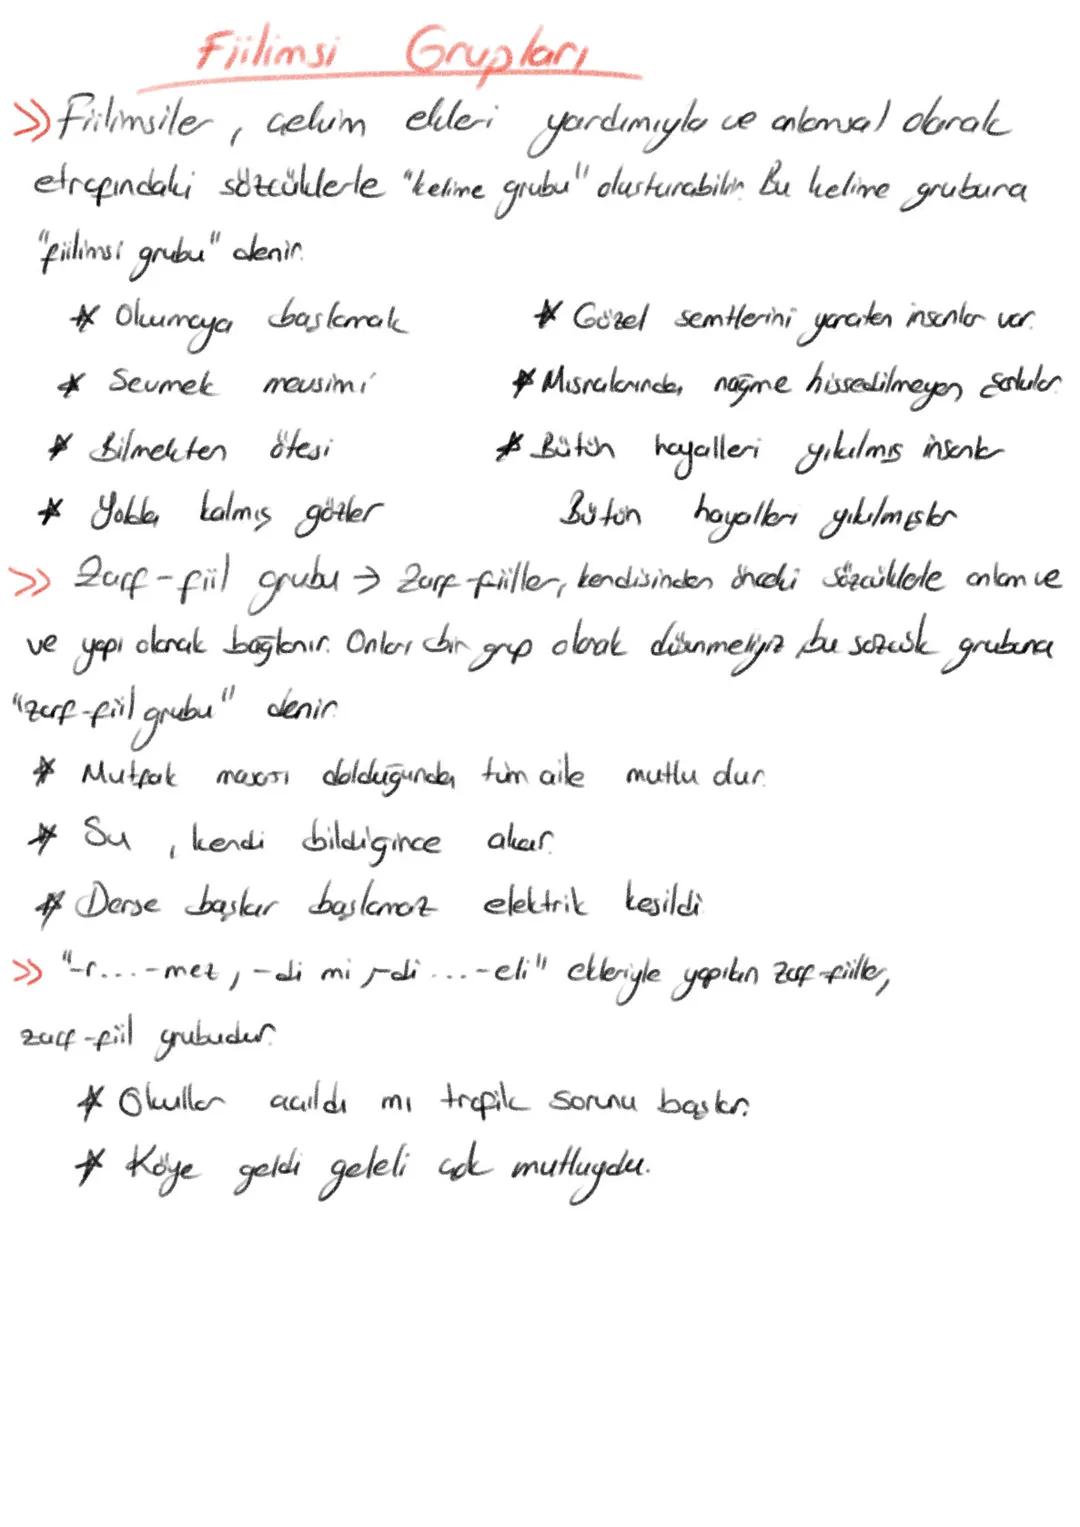 Fiilimsi Grupları
>> Fiilimsiler, çekim ekleri yardımıyla ve anlamsal olarak
etrafındaki sözcüklerle "kelime grubu" oluşturabilir. Bu kelime grubuna
"fiilimsi grubu" denir.
* Okumaya başlamak
* Sevmek mevsimi
* Bilmekten ötesi
* Yolda kalmış gözler
* Güzel semtlerini yaratan insanlar var.
* Mısralarında, nağme hissedilmeyen şarkılar
* Bütün hayalleri yıkılmış insanlar
Bütün hayalleri yıkılmışlar
>> Zarf-fiil grubu → Zarf-fiiller, kendisinden önceki sözcüklerle anlam ve
ve yapı olarak bağlanır. Onları bir grup olarak düşünmeliyiz, bu sözcük grubuna
"zarf-fiil grubu" denir.
* Mutfak masası dolduğunda, tüm aile mutlu dur.
* Su, kendi bildiğince akar.
* Derse başlar başlamaz elektrik kesildi
>> "-r...-mez, -di mi, -di...-eli" ekleriyle yapılan zarf-fiiller,
zarf-fiil grubudur.
* Okullar açıldı mı trafik sorunu başlar.
* Köye geldi geleli çok mutluydu.